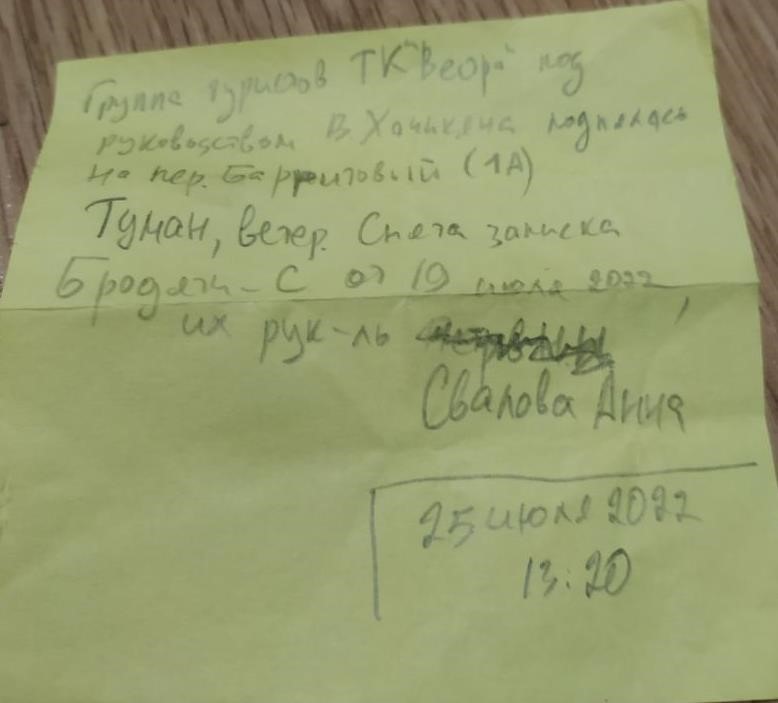 Группа туристов ТК "Веора" под
руководством В. Хачикяна поднялась
на пер. Барритовый (1А)
Туман, ветер. Снята записка
Бродяги-С от 19 июля 2022,
их рук-ль
Свалова Анна
25 июля 2022
13:20